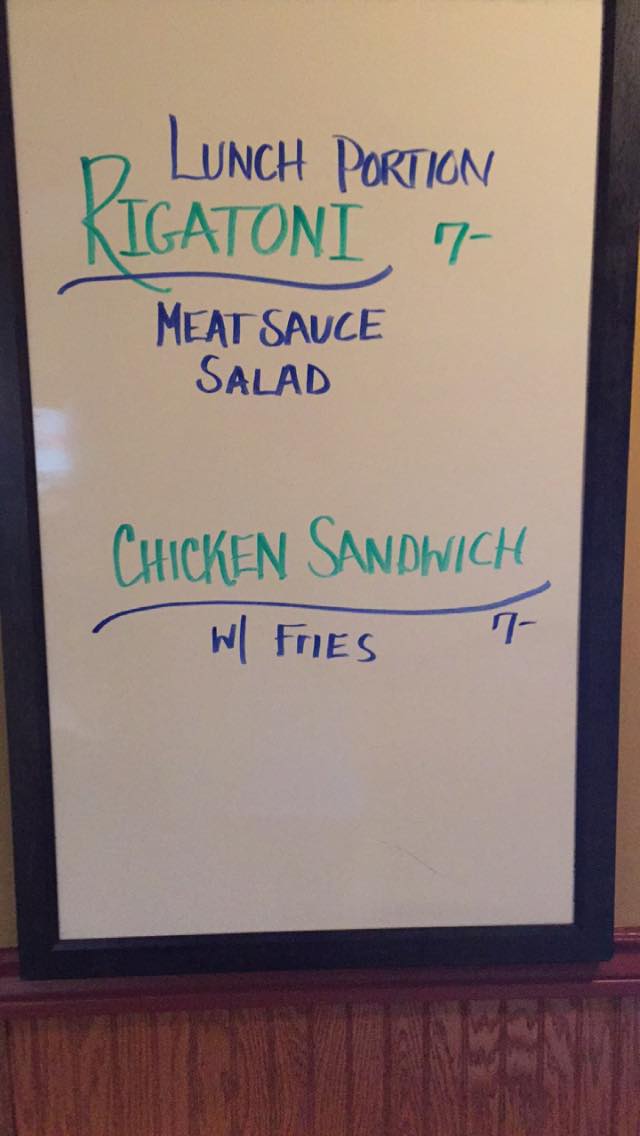 LUNCH PORTION
RIGATONI 7-
MEAT SAUCE
SALAD
CHICKEN SANDWICH
W/ FRIES 7-